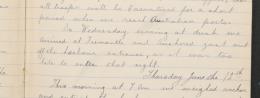 all troops will be quarantined for a short
period when we reach Australian ports.
On Wednesday evening at dusk we
arrived at Fremantle and anchored just out
of the harbour entrance, as it was too
late to enter that night.
Thursday June the 12th
This morning at 7 am we weighed anchor
and